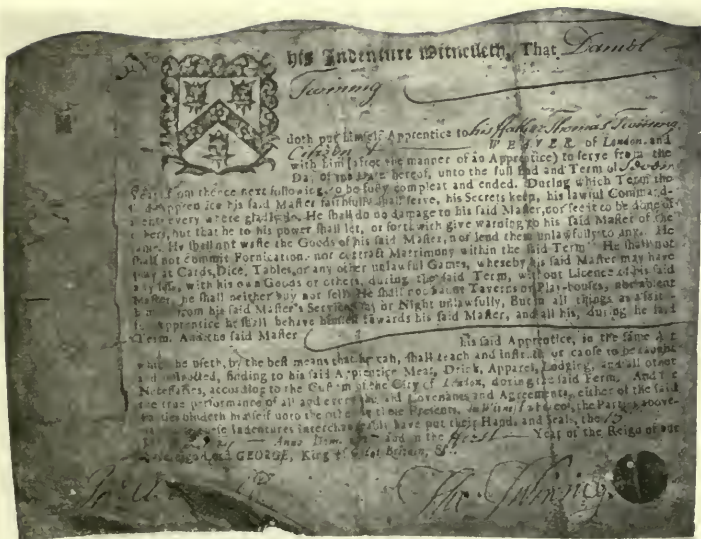 his Indenture Witnesseth, That Daniel
Twining
doth put himself Apprentice to his ffather Thomas Twining
Citizen & WEAVER of London, and
with him (after the manner of an Apprentice) to serve from the
Day of the Date hereof, unto the full End and Term of Seven
Years from thence next following, to be fully compleat and ended. During which Term the
said Apprentice his said Master faithfully shall serve, his Secrets keep, his lawful Command-
ments every where gladly do. He shall do no damage to his said Master, nor see it to be done of
others, but that he to his power shall let, or forthwith give warning to his said Master of the
same. He shall not waste the Goods of his said Master, nor lend them unlawfully to any. He
shall not commit Fornication, nor contract Matrimony within the said Term. He shall not
play at Cards, Dice, Tables, or any other unlawful Games, whereby his said Master may have
any loss, with his own Goods or others, during the said Term, without Licence of his said
Master, he shall neither buy nor sell. He shall not haunt Taverns or Play-houses, nor absent
from his said Master's Service Day or Night unlawfully, But in all things as a faith-
ful Apprentice he shall behave himself towards his said Master, and all his, during he said
Term. And the said Master his said Apprentice, in the same Art
which he useth, by the best means that he can, shall teach and instruct, or cause to be taught
and instructed, finding to his said Apprentice Meat, Drink, Apparel, Lodging, and all other
Necessaries, according to the Custom of the City of London, during the said Term. And for
the true performance of all and every the said Covenants and Agreements, either of the said
Parties bindeth himself unto the other by these Presents. In Witness whereof, the Parties above-
Indentures interchangeably have put their Hands and Seals, the 15
Anno Dom. and in the ffirst Year of the Reign of our
Lord GEORGE, King of Great Britain, &c.
Tho Twining